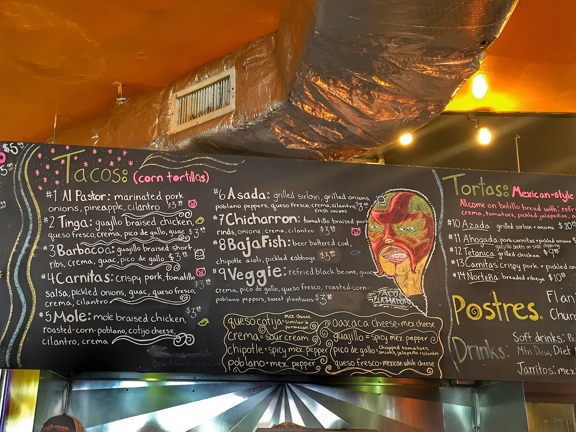 $5.95
Tacos: (corn tortillas)
#1 Al Pastor: marinated pork
onions, pineapple, cilantro $3
#2 Tinga: guajillo braised chicken,
queso fresco, crema, pico de gallo, guac $3
#3 Barbacoa: guajillo braised short
ribs, crema, guac, pico de gallo $3
#4 Carnitas: crispy pork, tomatillo
salsa, pickled onions, guac, queso fresco,
crema, cilantro $3
#5 Mole: mole braised chicken,
roasted-corn-poblano, cotija cheese,
cilantro, crema $3
#6 Asada: grilled sirloin, grilled onions
poblano peppers, queso fresco, crema, cilantro $3
fresh onions
#7 Chicharron: tomatillo braised pork
rinds, onions, crema, cilantro $3
#8 Baja Fish: beer battered cod,
chipotle aioli, pickled cabbage $3
#9 Veggie: refried black beans, guac
crema, pico de gallo, queso fresco, roasted-corn-
poblano peppers, sweet plantains $3
Taco
Luchador
queso cotija = mex cheese similar to parmesan
crema = sour cream
chipotle = spicy mex pepper
poblano = mex. pepper
oaxaca cheese = mex cheese
guajillo = spicy mex pepper
pico de gallo = chopped tomatoes, onions, jalapeño, cilantro
queso fresco = mexican white cheese
Tortas: Mexican-style
All come on bolillo bread with
crema, tomatoes, pickled jalapeños
#10 Azada grilled sirloin + onions $10
#11 Ahogada pork carnitas + pickled onions
guajillo salsa on side for dipping
#12 Tetanica grilled chicken $9
#13 Carnitas crispy pork + pickled
#14 Norteña breaded ribeye $10
Postres.
Flan
Churr
Drinks:
Soft drinks:
Mtn Dew, Diet
Jarritos: mex